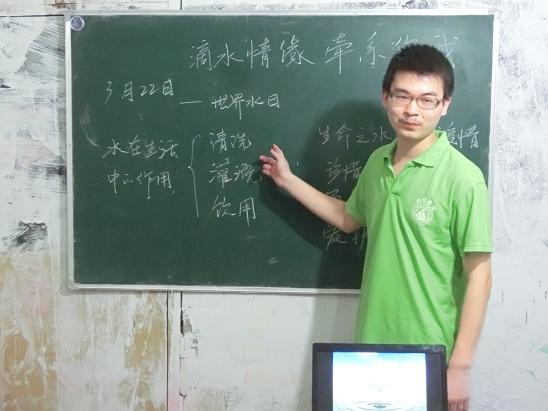 滴水情缘 牵系你我
3月22日
— 世界水日
水在生活
中的作用
清洗
灌溉
饮用
生命之水
惜
珍惜
爱护